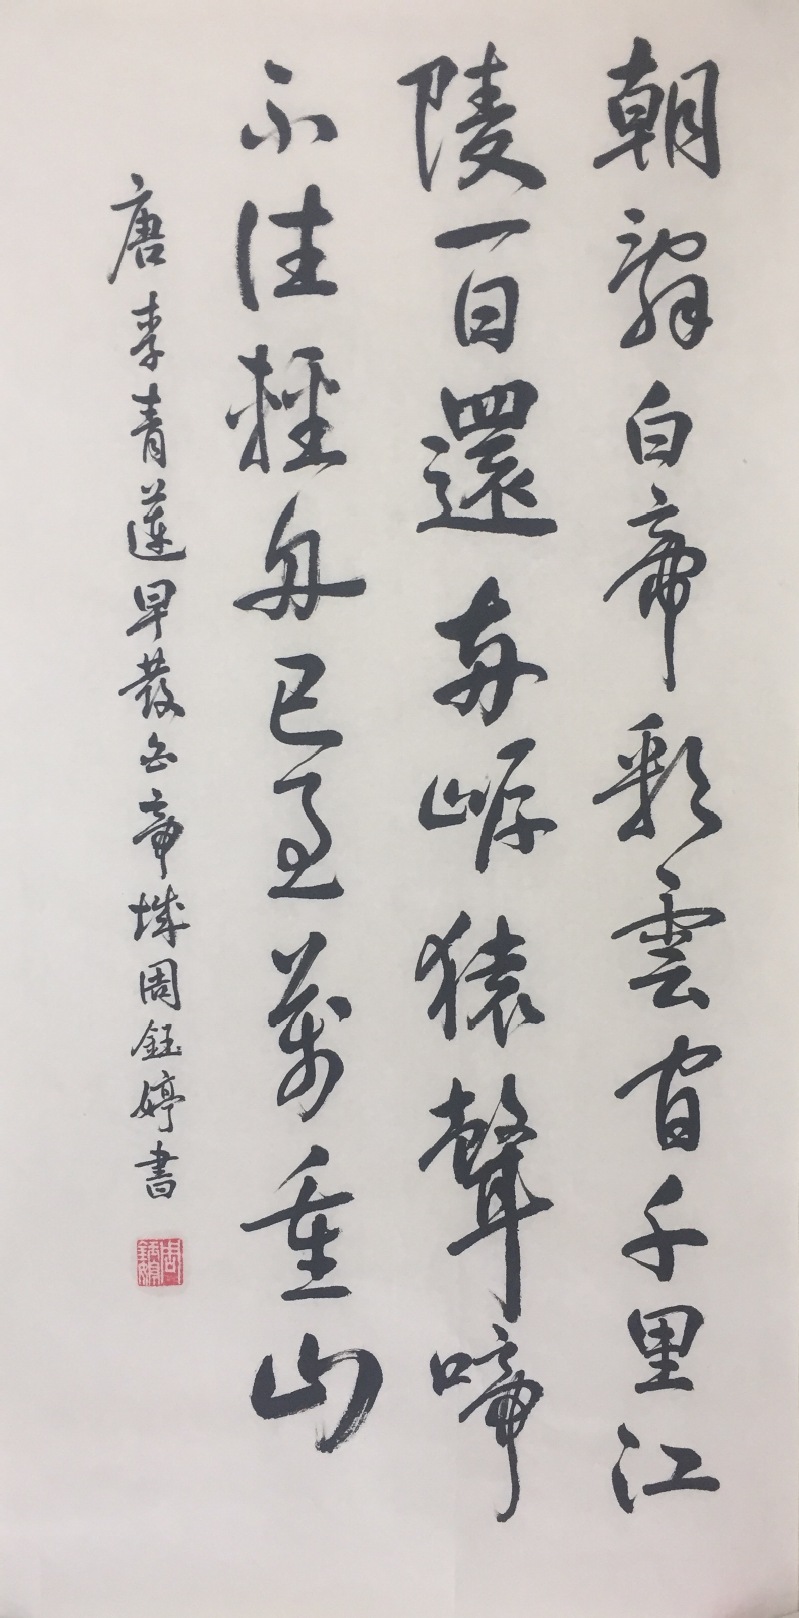 朝辭白帝彩雲間千里江
陵一日還兩岸猿聲啼
不住輕舟已過萬重山
唐李青蓮早發白帝城周鈺婷書